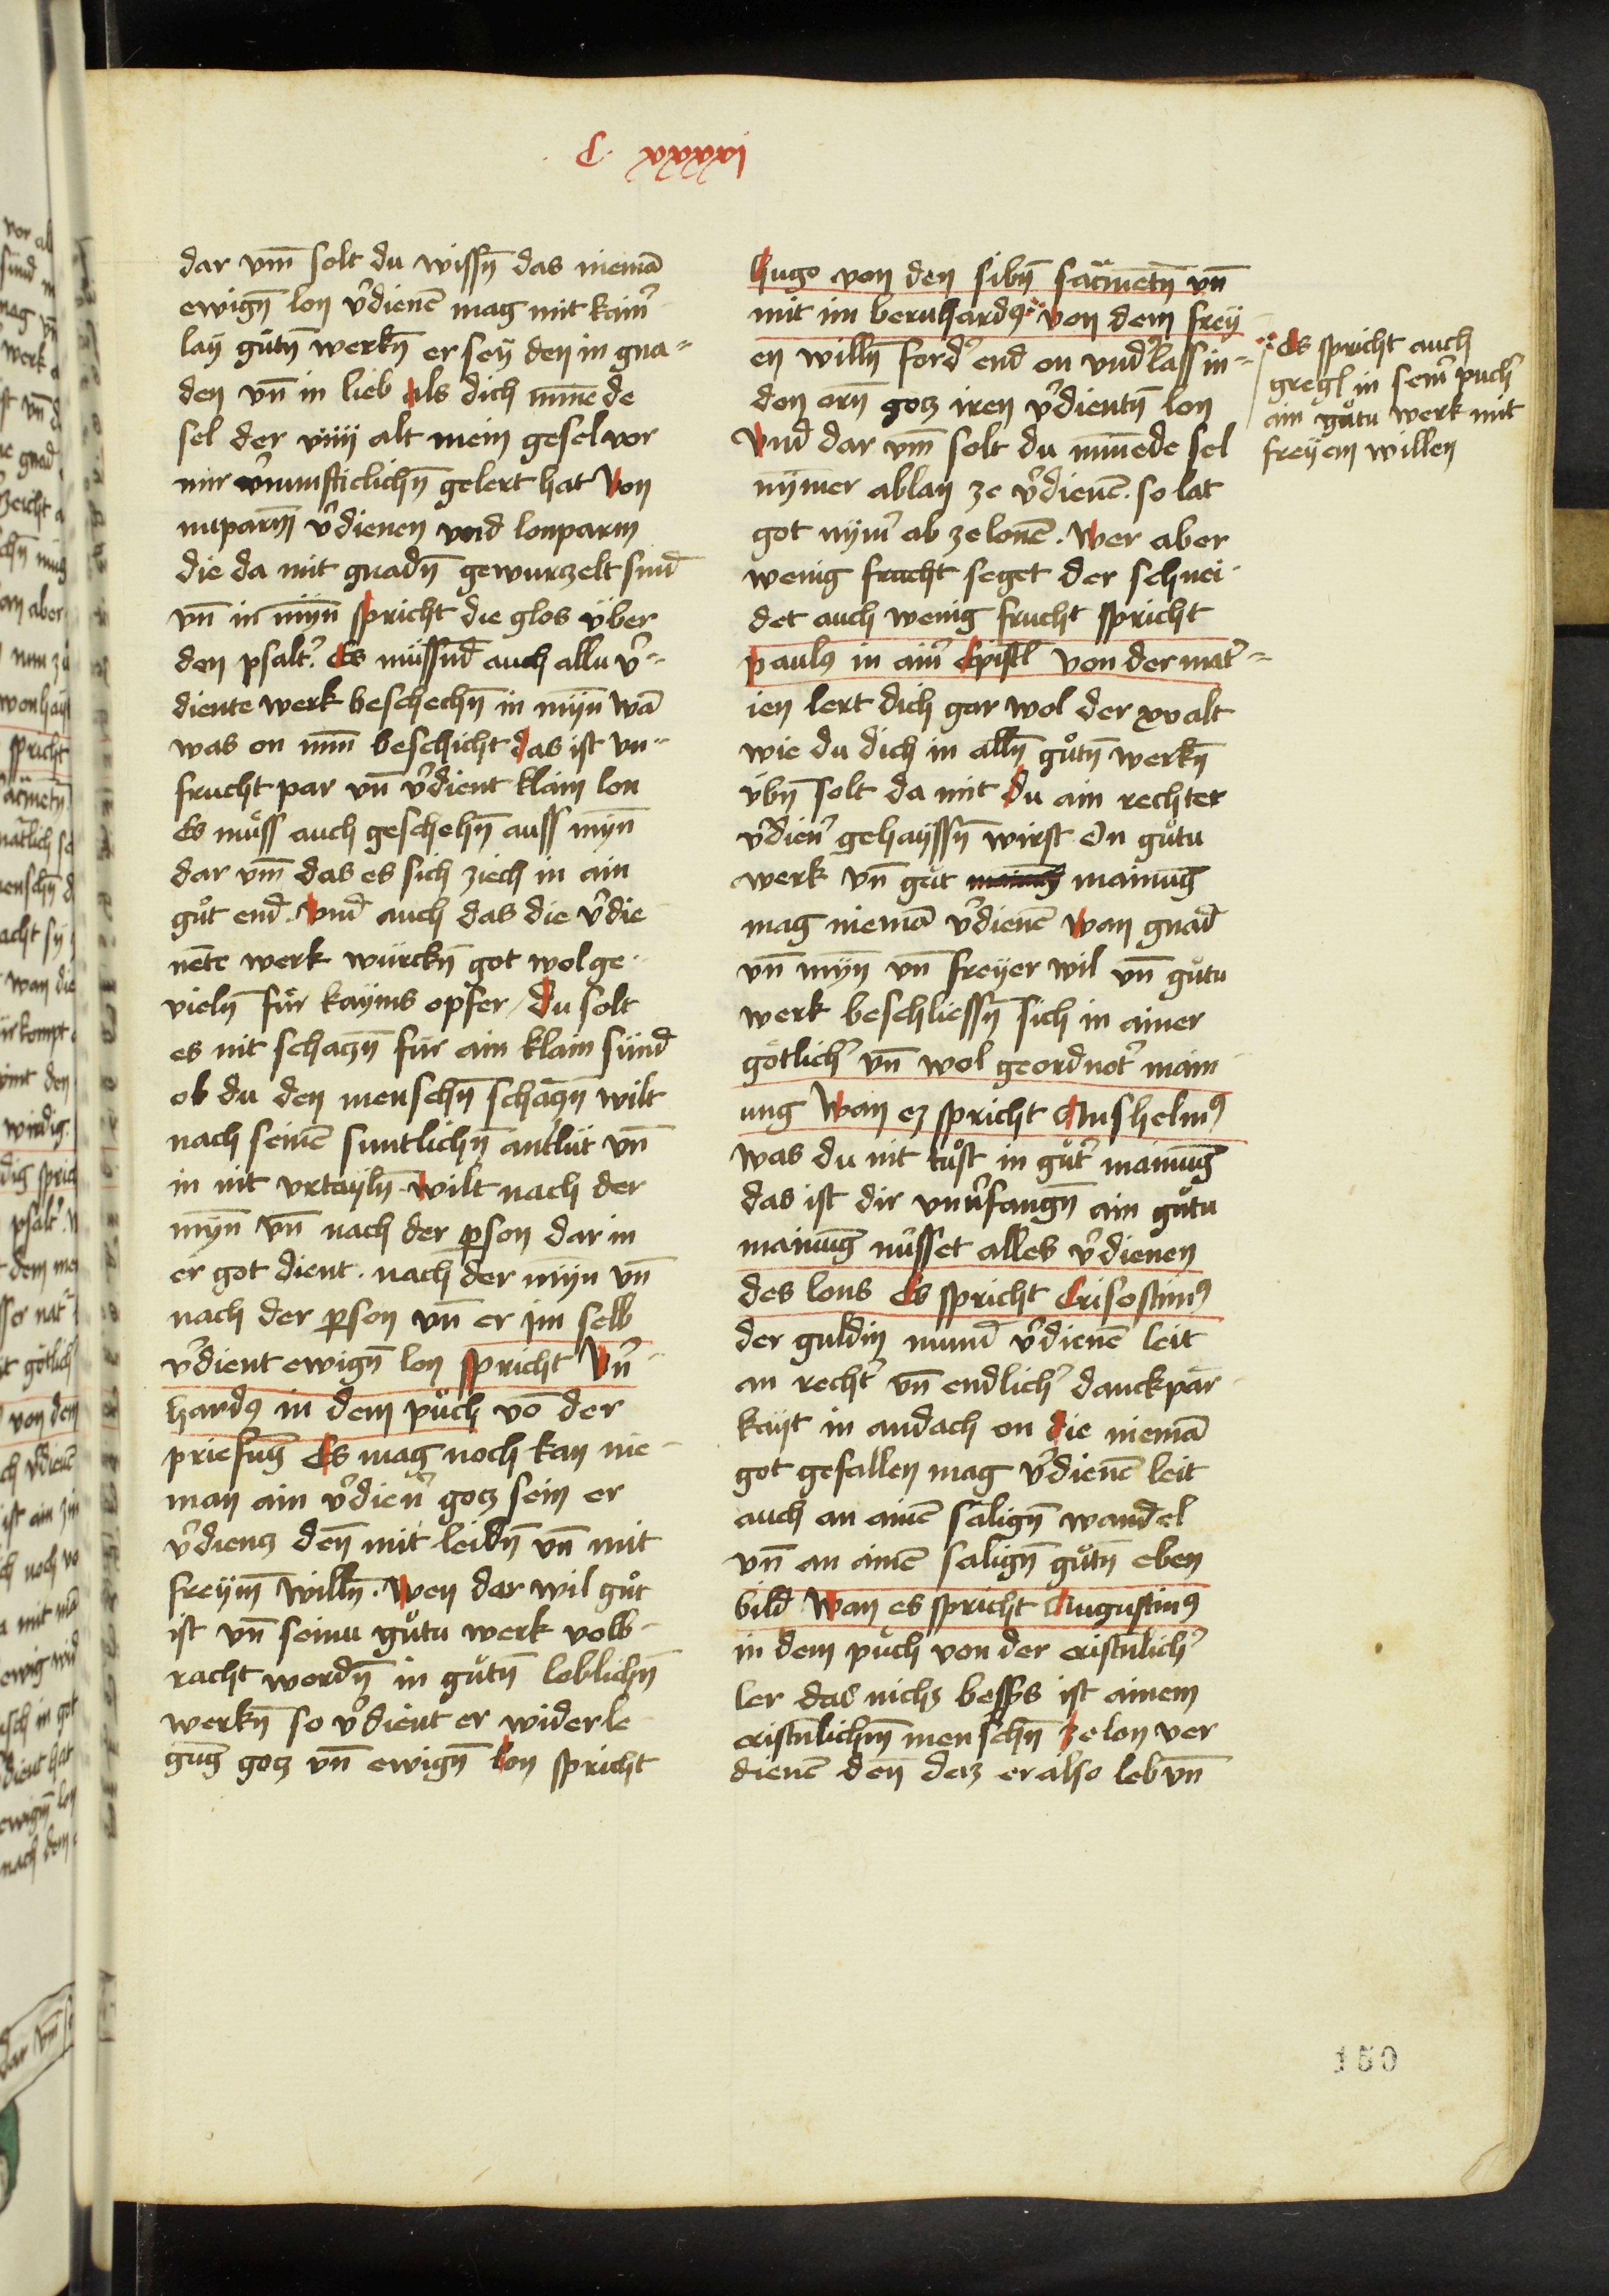 · C · xxxxvi
dar vm̄ solt du wissn̄ das niemā
ewign̄ lon v̾dienē mag mit kaim̾
lay gůtn̄ werkn̄ er sey den in gna=
den vn̄ in lieb als dich minnede
sel der viiij alt mein gesel vor
mir v̾nunfticlichn̄ gelert hat Von
nuparm̄ v̾dienen vnd lonparm
die da mit gnadn̄ gewurzelt sind
vn̄ in myn̄ spricht die glos über
den psalt̾. Es müssnd auch allu v̾=
diente werk beschechn̄ in myn̄ wā
was on min̄ beschicht das ist vn=
frucht par vn̄ v̾dient klain lon
Es můss auch geschehn̄ auss myn̄
dar vm̄ das es sich ziech in ain
gůt end. Vnd auch das die v̾die
nēte werk würckn̄ got wolge
vieln̄ für kayms opfer / du solt
es nit schaczn̄ für ain klain sünd
ob du den menschn̄ schäczn̄ wilt
nach seinē suntlichn̄ antlüt vn̄
in nit vrtayln̄ wilt nach der
myn̄ vn̄ nach der p̱son dar in
er got dient. nach der myn vn̄
nach der p̱son vn̄ er jm selb
v̾dient ewign̄ lon spricht V̾n=
hardꝰ in dem půch vō der
priefung Es mag noch kan nie
man ain v̾dien̾ gocz sein er
v̾diencz den̄ mit leidn̄ vn̄ mit
freym̄ willn̄. Wen der wil gůt
ist vn̄ seinu gůtu werk volb
racht wordn̄ in gůtn̄ leblichn̄
werkn̄ so v̾dient er widerle
gūg gocz vn̄ ewign̄ lon spricht
Hugo von den sibn̄ sac̄metn̄ vn̄
mit im bernhardꝰ Von dem frey
en willn̄ ford̾ end on vnd̾lass in=
den ern̄ gocz iren v̾dientn̄ lon
Vnd dar vm̄ solt du minnede sel
nymer ablan ze v̾dienē. so lat
got nym̾ ab ze lonē. Wer aber
wenig frucht seget der schnei
det auch wenig frucht spricht
paulꝰ in aim̾ Epistl von der mat̾=
ien lert dich gar wol der xv alt
wie du dich in alln̄ gůtn̄ werkn̄
übn̄ solt da mit du ain rechter
v̾dien̾ gehayssn̄ wirst On gůtu
werk vn̄ gůt mainūg
mag niemā v̾dienē wan gnad
vn̄ myn̄ vn̄ freyer wil vn̄ gůtu
werk beschliessn̄ sich in ainer
götlich̾ vn̄ wol geordnot̾ main
ung Wan ez spricht Anshelmꝰ
was du nit tůst in gůt̾ mainūg
das ist dir vnv̾fangn̄ ain gůtu
mainūg nüsset alles v̾dienen
des lons Es spricht Crisostimꝰ
der guldin mund v̾dienē leit
an recht̾ vn̄ endlich̾ danckpär
kayt in andach on die niemā
got gefallen mag v̾dienē leit
auch an ainē säligen̄ wandel
vn̄ an ainē salign̄ gůtn̄ eben
bild Wan es spricht Augustinꝰ
in dem půch von der cristnlich̾
ler das nichz bessrs ist ainem
cristnlichm̄ menschn̄ ze lon ver
dienē den̄ daz er also leb vn̄
Es spricht auch
gregꝰ in seim̾ puch̾
ain gůtu werk mit
freyem willen
150